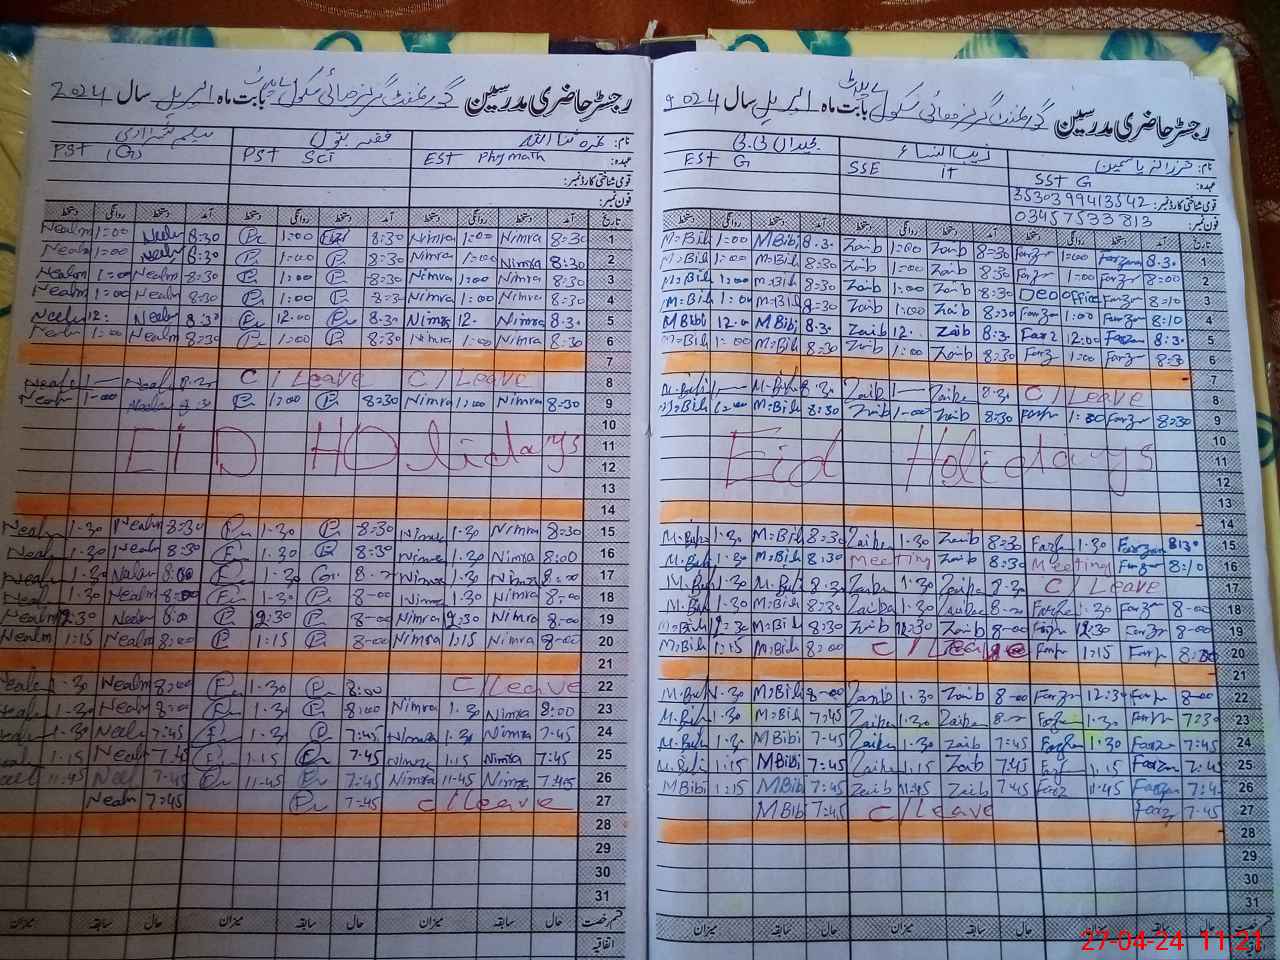 رجسٹر حاضری مدرسین گورنمنٹ گرلز ہائی سکول بابت ماہ اپریل سال 2024
نام: شمرہ ثنا اللہ
عہدہ: EST Phy math PST Sci PST (G)
قومی شناختی کارڈ نمبر:
فون نمبر:
تاریخ آمد دستخط روانگی دستخط آمد دستخط روانگی دستخط آمد دستخط روانگی دستخط
1 8:30 Nimra 1:00 Nimra 8:30 1:00 8:30 Nealm 1:00 Nealm
2 8:30 Nimra 1:00 Nimra 8:30 1:00 8:30 Nealm 1:00 Nealm
3 8:30 Nimra 1:00 Nimra 8:30 1:00 8:30 Nealm 1:00 Nealm
4 8:30 Nimra 1:00 Nimra 1:00 8:30 Nealm 1:00 Nealm
5 8:30 Nimra 12. Nimra 8:30 12.00 8:30 Nealm 12:
6 8:30 Nimra 1:00 Nimra 8:30 1:00 8:30 Nealm 1:00 Nealm
7
8 C/Leave C/Leave
9 8:30 Nimra 1:00 Nimra 8:30 1:00 Nealm 1:00 Nealm
10
11 EID HOlidays
12
13
14
15 8:30 Nimra 1.30 Nimra 8:30 1.30 8:30 Nealm 1.30 Nealm
16 8:00 Nimra 1.30 Nimra 8:30 1.30 8:30 Nealm 1.30 Nealm
17 Nimra 1.30 Nimra 1.30 8:00 Nealm 1.30 Nealm
18 8:00 Nimra 1.30 Nimra 8-00 1-30 8:00 Nealm 1.30 Nealm
19 8-00 Nimra 12:30 Nimra 8-00 12:30 8:00 Nealm 12:30 Nealm
20 8-00 Nimra 1:15 Nimra 8-00 1:15 8:00 Nealm 1:15 Nealm
21
22 C/Leave 8:00 1.30 8:00 Nealm 1.30
23 8:00 Nimra 1.30 Nimra 8:00 1.30 8:00 Nealm 1.30
24 7-45 Nimra 1.30 Nimra 7:45 1.30 7:45 Neal 1-30
25 7:45 Nimra 1:15 Nimra 7.45 1:15 7.45 Neal 1.15
26 7:45 Nimra 11-45 Nimra 7:45 11-45 7-45 Neal 11-45
27 C/Leave 7:45 7:45 Nealm
28
29
30
31
قسم رخصت حال سابقہ میزان حال سابقہ میزان حال سابقہ میزان
اتفاقیہ
رجسٹر حاضری مدرسین گورنمنٹ گرلز ہائی سکول بابت ماہ اپریل سال 2024
نام: فرزانہ یاسمین زیب النساء بی بی
عہدہ: SST G SSE IT EST G
قومی شناختی کارڈ نمبر: 35303 99413542
فون نمبر: 03457533813
تاریخ آمد دستخط روانگی دستخط آمد دستخط روانگی دستخط آمد دستخط روانگی دستخط
1 8.30 Farzana 1:00 Farz 8:30 Zaib 1:00 Zaib 8.30 M Bibi 1:00 M=Bibi
2 8:00 Farz 1:00 Farz 8:30 Zaib 1:00 Zaib 8:30 M=Bibi 1:00 M=Bibi
3 8:10 Farz Office DEO 8:30 Zaib 1:00 Zaib 8:30 M=Bibi 1:00 M=Bibi
4 8:10 Farz 1:00 Farz 8:30 Zaib 1:00 Zaib 8:30 M=Bibi 1:00 M=Bibi
5 8:30 Farzan 12:00 Farz 8:30 Zaib 12. Zaib 8:30 M Bibi 12.00 M Bibi
6 8:30 Farz 1:00 Farz 8:30 Zaib 1:00 Zaib 8:30 M=Bibi 1:00 M=Bibi
7
8 C/Leave 8:30 Zaiba Zaiba 8:30 M-Bibi M.Bibi
9 8:30 Farz 1:00 Farz 8:30 Zaib 1-00 Zaib 8:30 M=Bibi M=Bibi
10
11 Eid Holidays
12
13
14
15 8:30 Farzan 1.30 Farzan 8:30 Zaib 1.30 Zaiba 8:30 M=Bibi 1.30 M.Bibi
16 8:10 Farz Meeting 8:30 Zaib Meeting 8:30 M=Bibi 1.30 M.Bibi
17 C/Leave 8:30 Zaiba 1.30 Zaiba 8:30 M.Bibi 1.30 M.Bibi
18 8-00 Farz 1.30 Farzan Zaiba 1.30 Zaiba 8:30 M=Bibi 1.30 M.Bibi
19 8-00 Farz 12:30 Farz 8-00 Zaib 12:30 Zaib 8:30 M=Bibi 12:30 M=Bibi
20 8:00 Farz 1:15 Farz C/Leave 8:00 M=Bibi 1:15 M=Bibi
21
22 8-00 Farz 12:30 Farzan 8-00 Zaib 1.30 Zaib 8-00 M=Bibi 1.30 M.Bibi
23 7:30 Farz 1.30 Farzan Zaiba 1.30 Zaiba 7:45 M=Bibi 1.30 M.Bibi
24 7:45 Farzan 1.30 Farzan 7:45 Zaib 1.30 Zaiba 7-45 M Bibi 1.30 M.Bibi
25 7:45 Farzan 1.15 Farz 7:45 Zaib 1:15 Zaiba 7:45 M Bibi 1:15 M.Bibi
26 7:4 Farzan 11.45 Farz 7:45 Zaib 11:45 Zaib 7:45 M Bibi 1:15 M Bibi
27 7.45 Farz C/Leave 7:45 M Bibi
28
29
30
31
حال سابقہ میزان حال سابقہ میزان حال سابقہ میزان
27-04-24 11:21